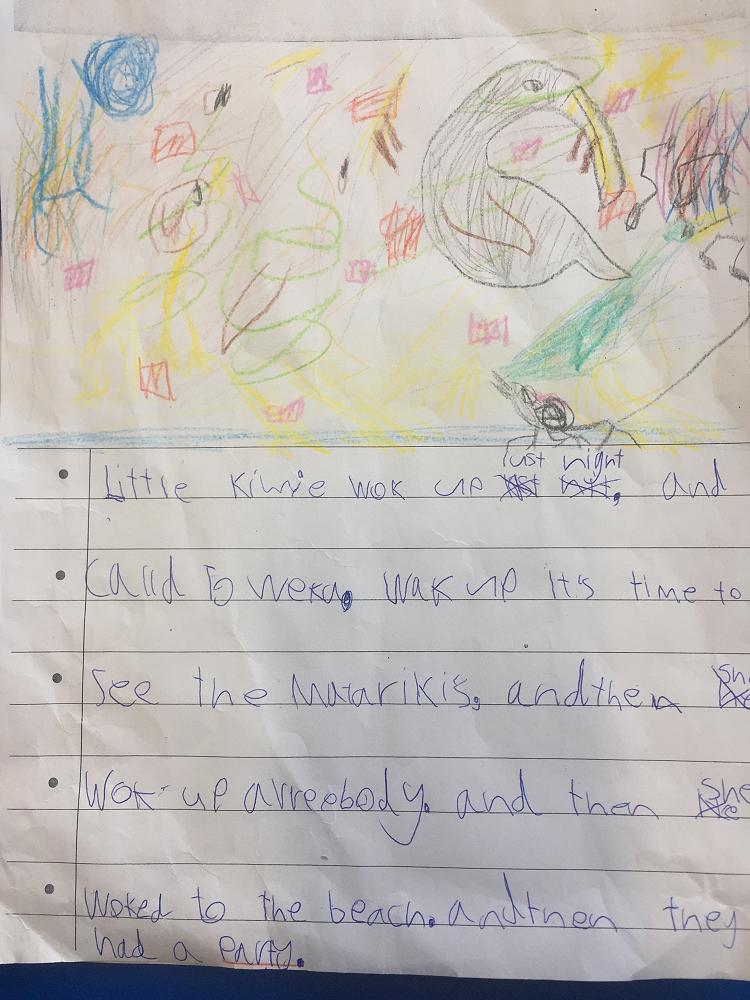 last night
Little Kiwie wok up, and
calld to weka, wak up it's time to
see the Matarikis, and then she
wok up avreebody. and then she
woked to the beach. and then they
had a party.